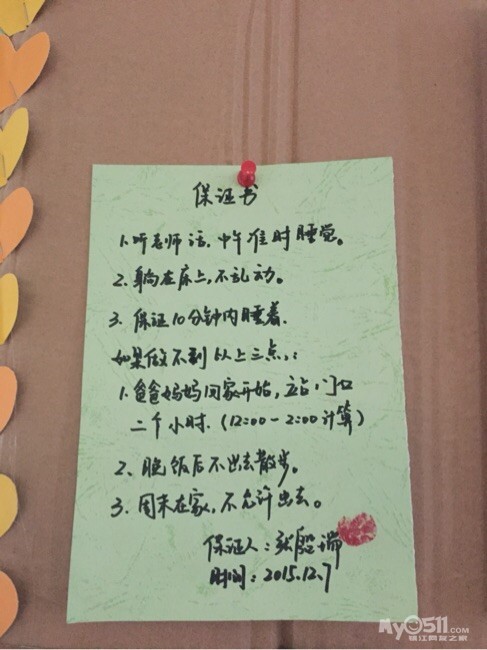 保证书
1.听老师话,中午准时睡觉。
2.躺在床上,不乱动。
3.保证10分钟内睡着.
如果做不到以上三点,:
1.爸爸妈妈回家开始,立占门口
二个小时.(12:00-2:00计算)
2、晚饭后不出去散步。
3.周末在家,不允许出去。
保证人:张殷瑞
时间:2015.12.7
My0511.COM
镇江网友之家